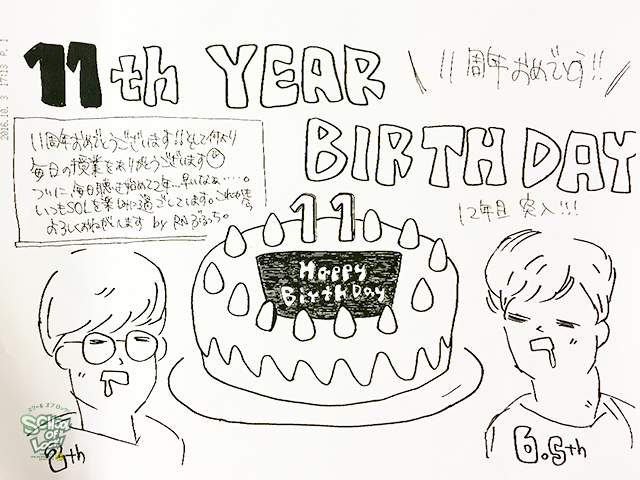 2016.10. 3 17:13 P. 1
11th YEAR
BIRTHDAY
11周年おめでとう!!
11周年おめでとうございます!!そして何より
毎日の授業をありがとうございます
ついに、毎日聴き始めて2年…早いなぁ……。
いつもSOLを楽しみに過ごしてます。これからも
よろしくおねがいします by RN ぶるっち。
12年目 突入!!!
11
Happy
Birth Day
スクール オブ ロック!
SCHOOL
OF
LOCK!
6.5th